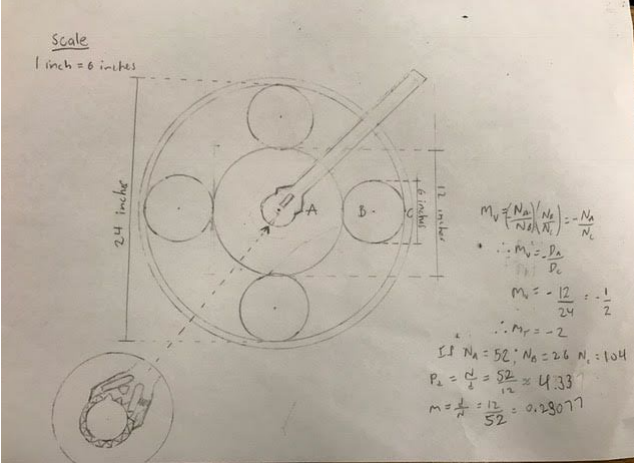 Scale
1 inch = 6 inches
24 inches
A
B
C
6 inches
12 inches
Mv = (-NA/NB)(NB/NC) = -NA/NC
∴ Mv = -DA/DC
Mv = -12/24 = -1/2
∴ MT = -2
If NA = 52; NB = 26 NC = 104
Pd = N/d = 52/12 = 4.33
m = d/N = 12/52 = 0.23077